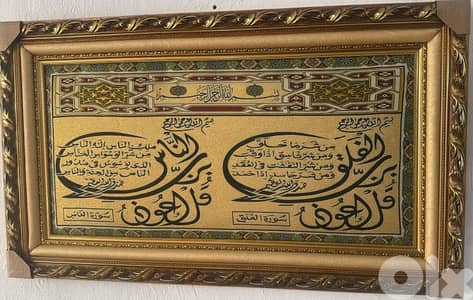 بسم الله الرحمن الرحيم
بسم الله الرحمن الرحيم
قل أعوذ برب الفلق
من شر ما خلق
ومن شر غاسق إذا وقب
ومن شر النفثت في العقد
ومن شر حاسد إذا حسد
سورة الفلق
بسم الله الرحمن الرحيم
قل أعوذ برب الناس
ملك الناس إله الناس
من شر الوسواس الخناس
الذي يوسوس في صدور
الناس من الجنة والناس
سورة الناس
olx